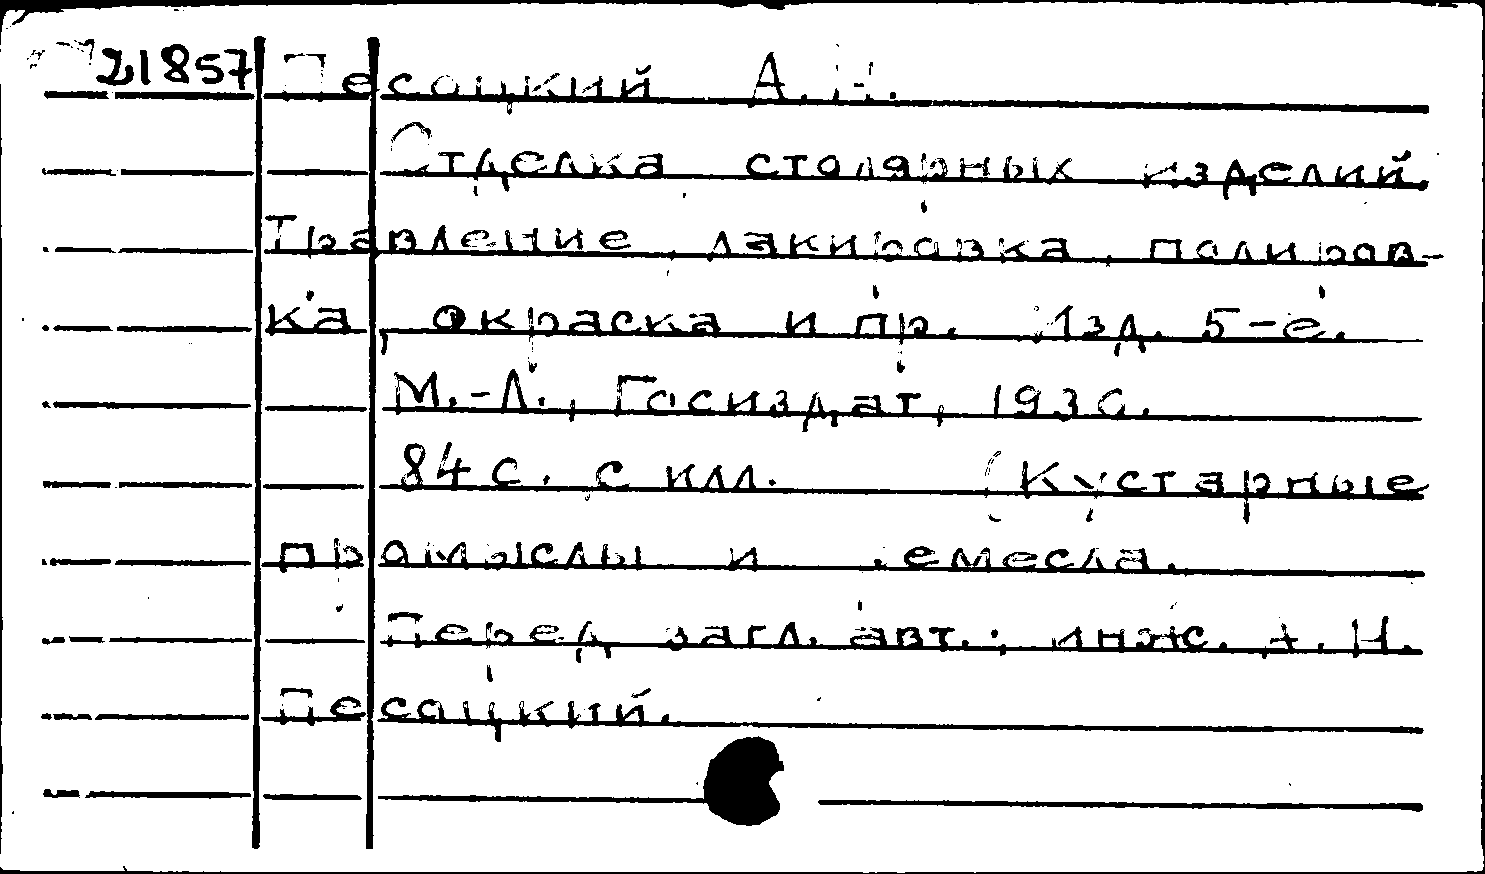 21857 Песоцкий А. Н.
Отделка столярных изделий.
Травление, лакировка, полиров-
ка, окраска и пр. Изд. 5-е.
М.-Л., Госиздат, 1930.
84 с. с илл. (Кустарные
промыслы и ремесла.
Перед загл. авт.: инж. А. Н.
Песоцкий.